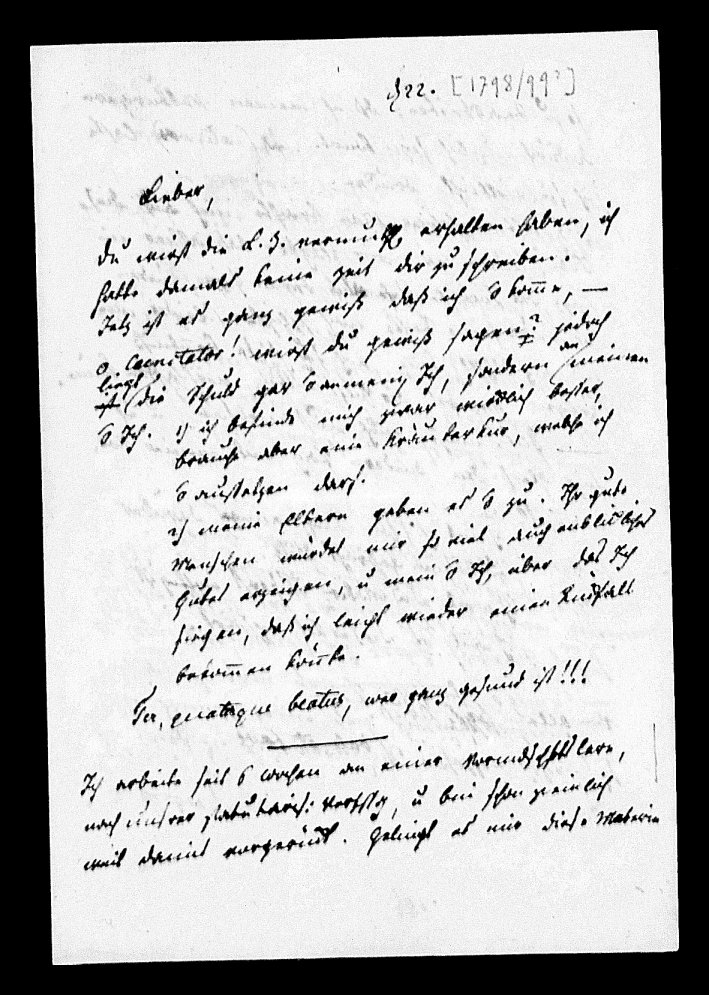 [1798/99?]
Lieber,
du wirst die L. Z. vermuthl erhalten haben, ich
hatte damals keine Zeit dir zu schreiben.
Jetz ist es ganz gewiß daß ich 0 kome, —
o wirst du gewiß sagen? jedoch
liegt
die Schuld gar 0 an mein Ich, sondern an meinen
0 Ich. 1) ich befinde mich zwar wirklich besser,
brauche aber eine Kräuterkur, welche ich
0 aussetzen darf.
2) meine Eltern geben es 0 zu. Ihr gute
Menschen würdet mir so viel augenblickliches
Gutes erzeigen, u mein 0 Ich, über das Ich
siegen, daß ich leicht wieder einen Rückfall
bekommen könte.
Ter, quaterque beatus, wer ganz gesund ist!!!
Ich arbeite seit 6 wochen an einer
nach unsrer u bin schon ziemlich
weit damit vorgerückt. Gelingt es mir diese Materie